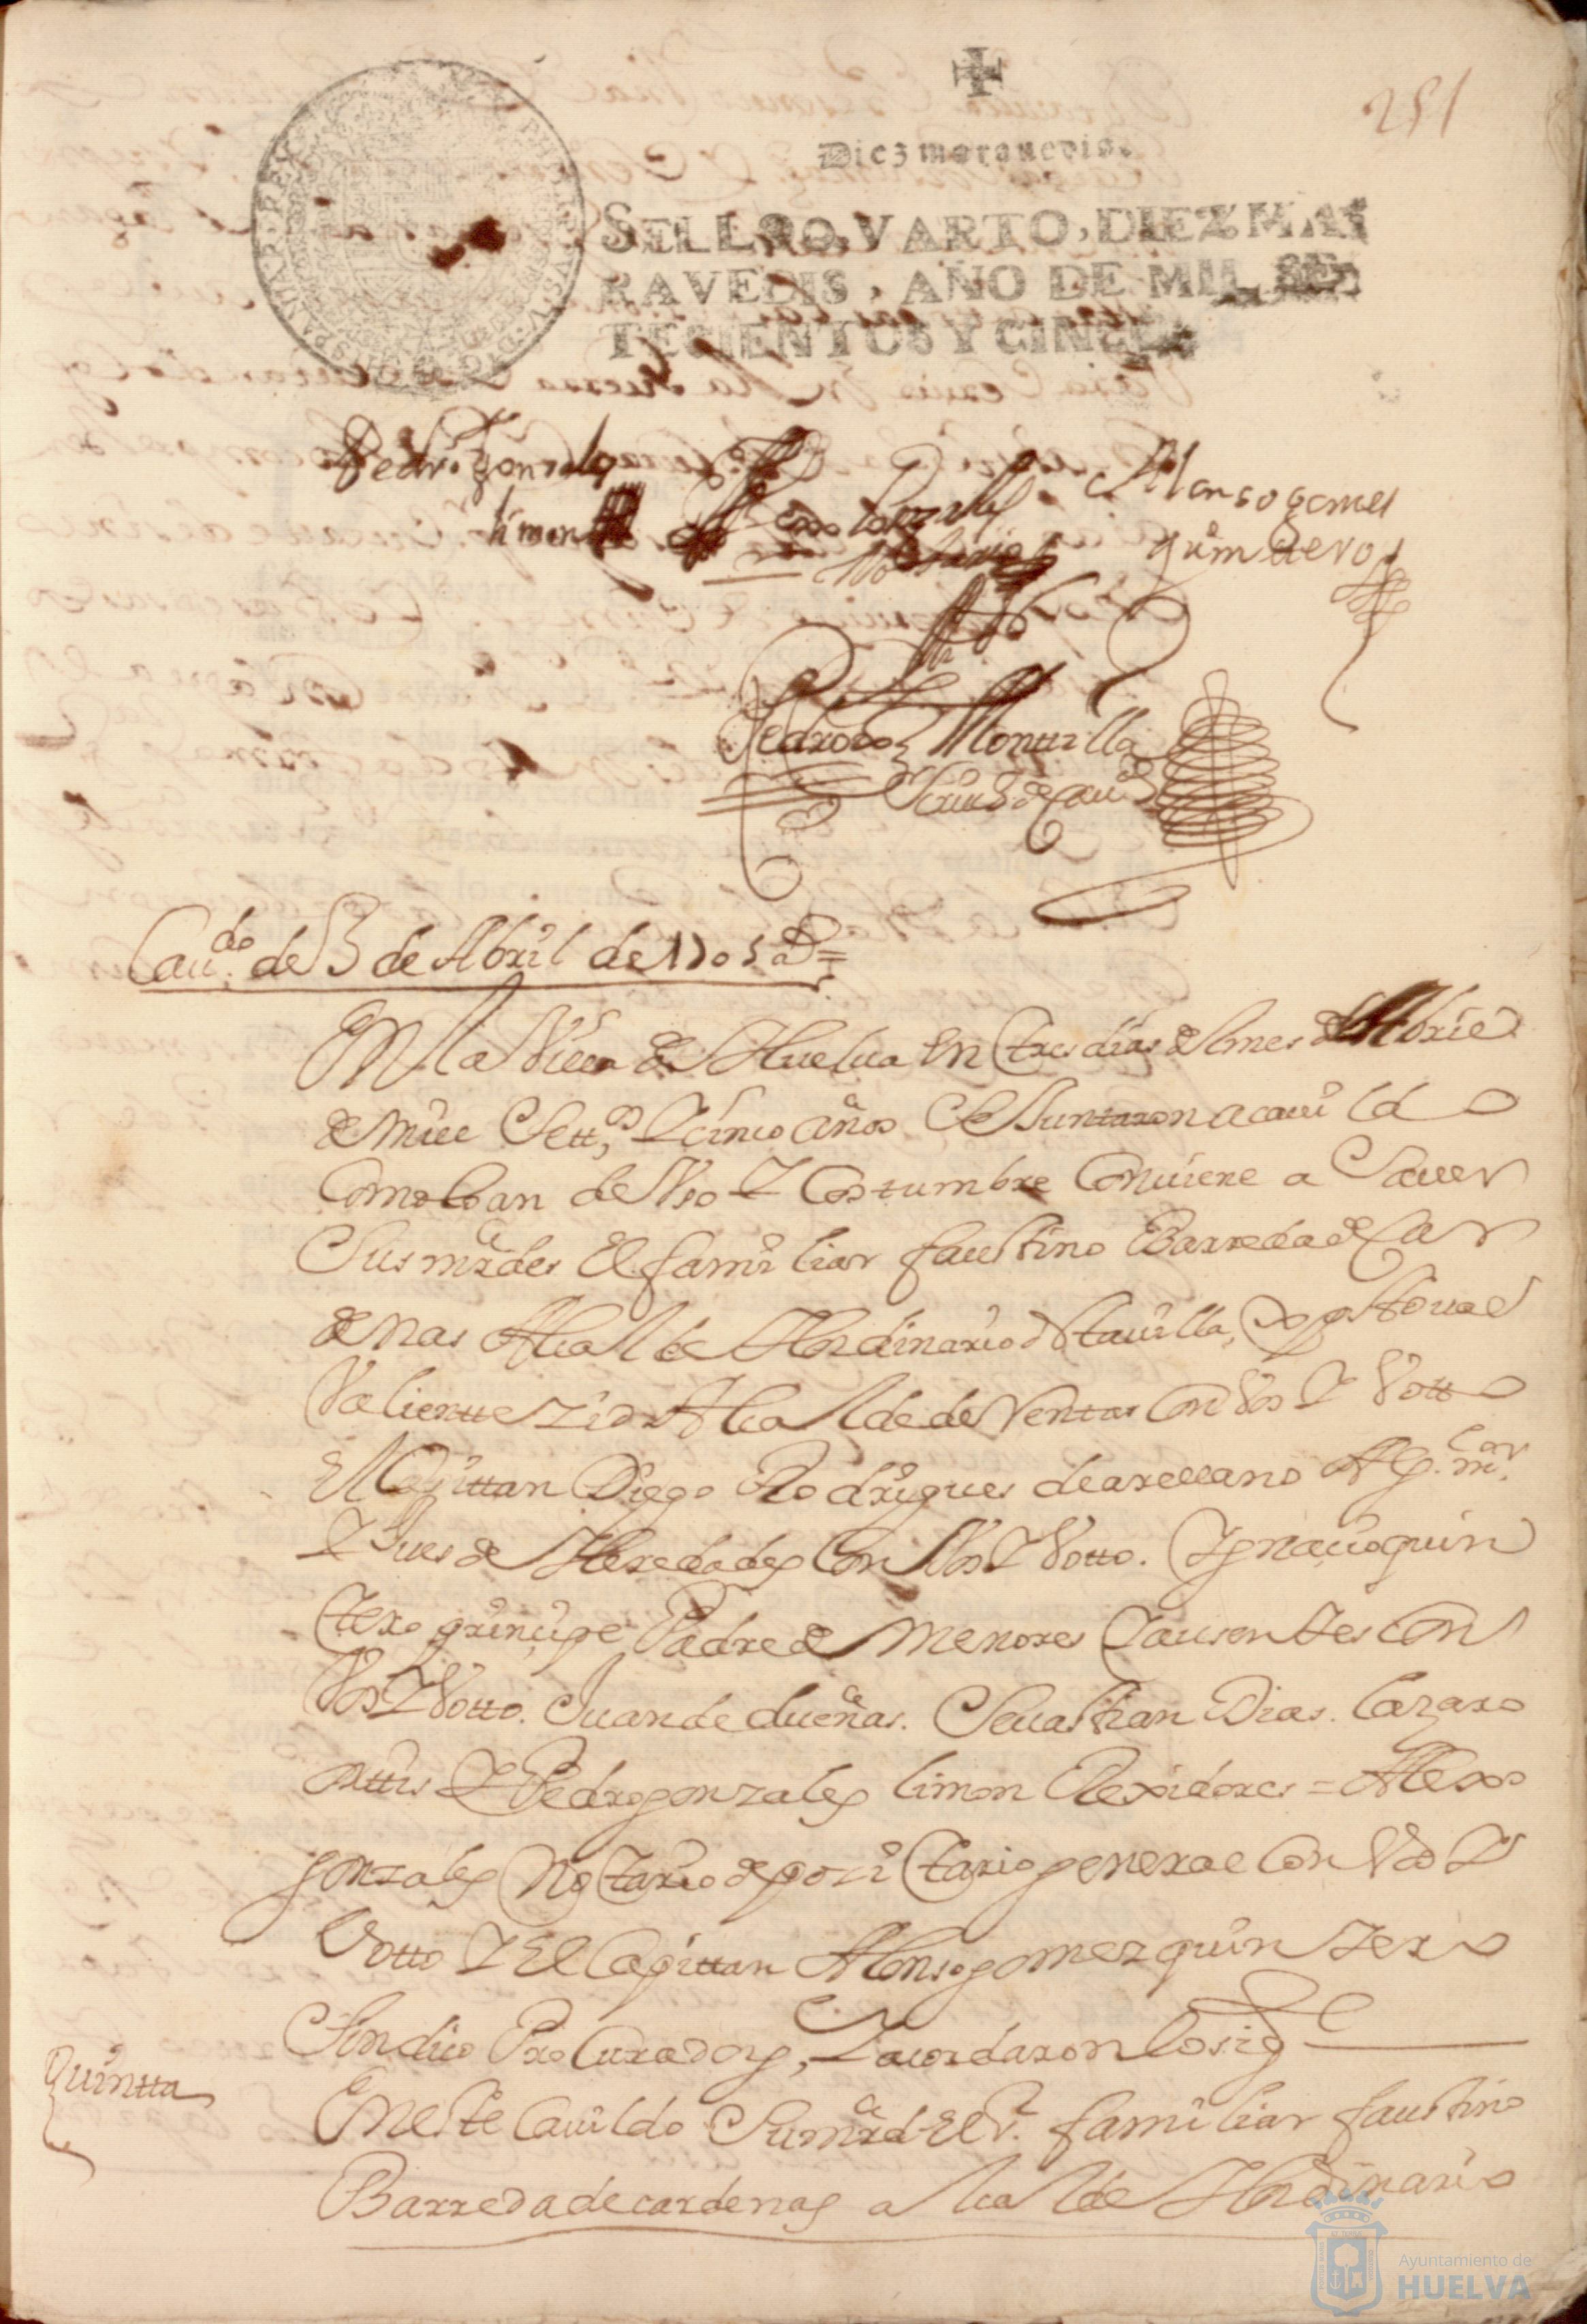 251
Diez maravedis.
SELLO QVARTO, DIEZ MA
RAVEDIS, AÑO DE MIL SE
TECIENTOS Y CINCO
Pedro Gonzales
limon
Alexo Gonzales
Notario
Alonso gomes
quintero
Pedro Montilla
Scriu.º de Cau.do
Cau.do de 3 de Abril de 1705 a.s =
En la Villa de Huelua en tres dias del mes de Abril
de mill Sett.os Y cinco años Se Juntaron a cauildo
Como lo an de Vso Y Costumbre Conuiene a Sauer
Sus mrdes El familiar faustino Barreda de Car
denas Alcalde Hordinario desta uilla,
Valiente Alcalde de Ventas con Vos Y Votto
El Capittan Diego Rodrigues de arellano Alg. mor
Y Jues de Heredades Con Vos Y Votto. Ygnacio quin
tero principe Padre de Menores Y ausentes con
Vos Y Votto. Juan de dueñas. Seuastian Dias. Lazaro
orttis Y Pedro gonzales limon Rexidores = Alexo
gonzales Notario depocitario general Con Vos Y
Votto Y El Capittan Alonso gomez quintero
Sindico Procurador, Y acordaron lo sig.te
Quintta
En este Cauildo Su mrd El S.r familiar faustino
Barreda de cardenas alcalde Hordinario
Ayuntamiento de
HUELVA